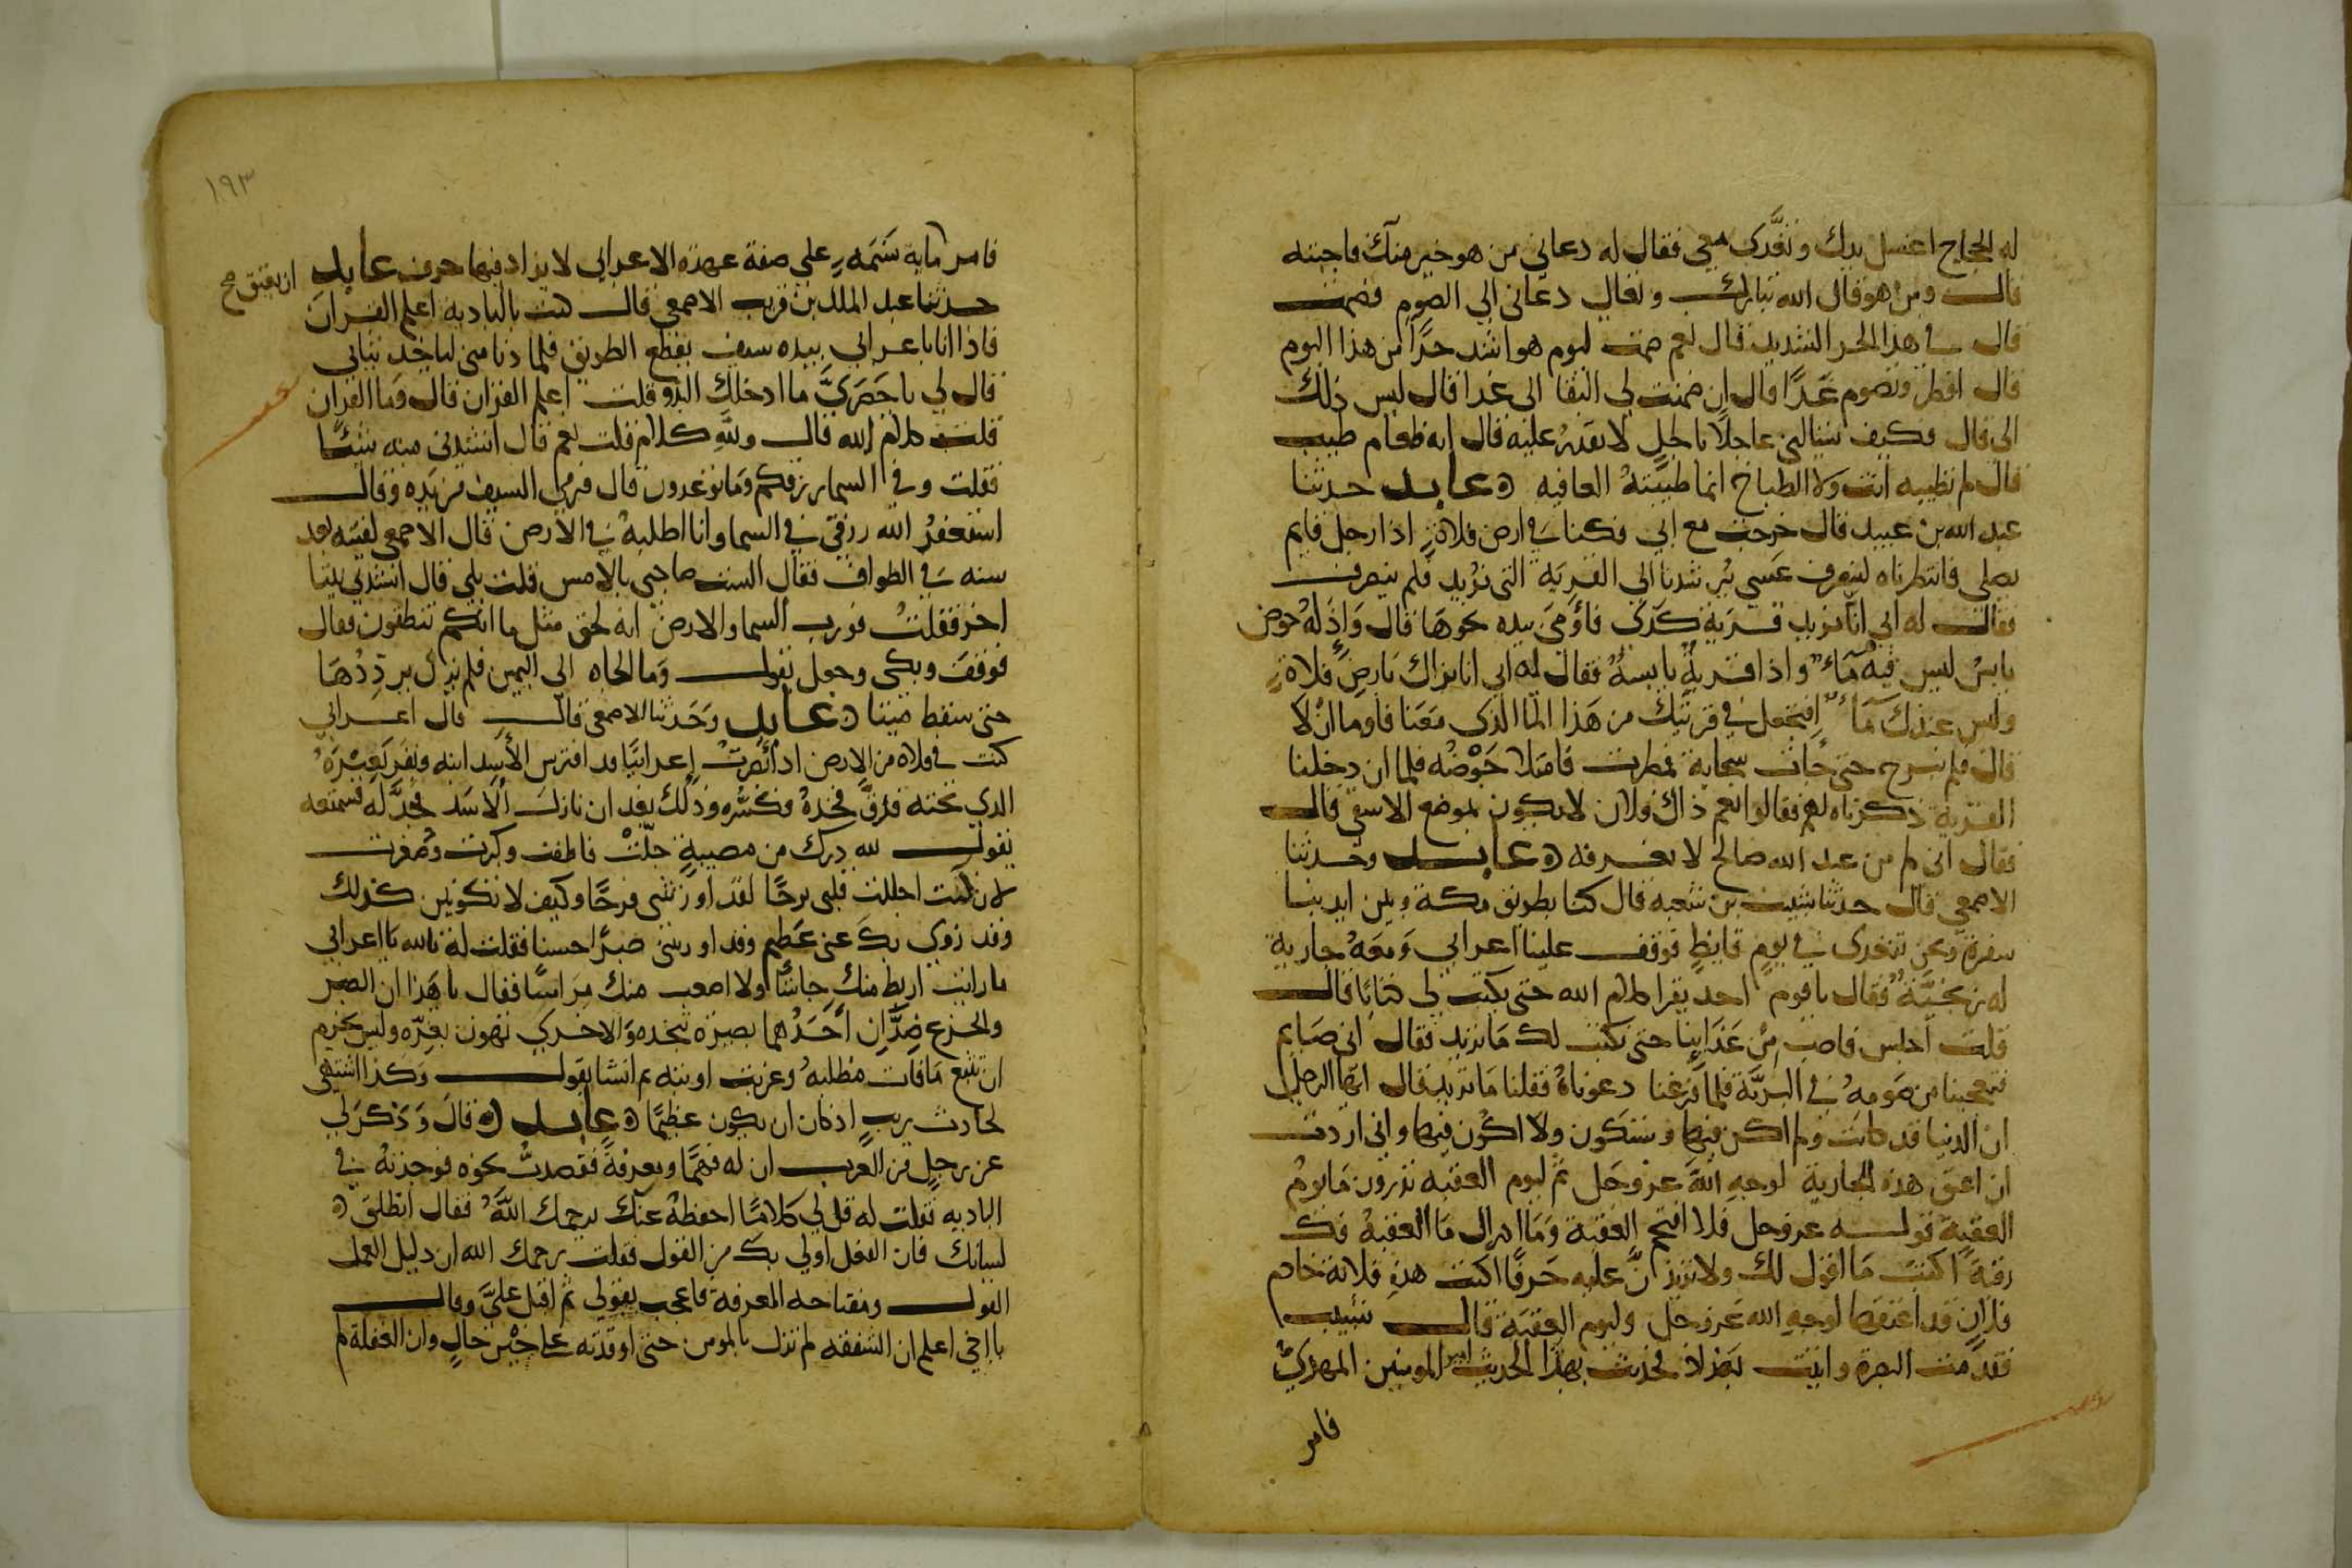 له الحجاج اغسل يدك وتغدى معي فقال له دعاني من هو خير منك فاجبته
قال ومن هو قال الله تبارك وتعالى دعاني الى الصوم فصمت
قال في هذا الحر الشديد قال نعم صمت ليوم هو اشد حرا من هذا اليوم
قال افطر وتصوم غدا قال ان ضمنت لي البقا الى غدا قال ليس ذلك
الي قال فكيف تسالني عاجلا باجل لا تقدر عليه قال انه طعام طيب
قال لم تطيبه انت ولا الطباخ انما طيبته العافيه عابد حدثنا
عبد الله بن عبيد قال خرجت مع ابي فكنا في ارض فلاة اذا رجل قايم
يصلي فانتظرناه لينصرف عسى يرشدنا الى القرية التي نريد فلم ينصرف
فقال له ابي انا نريد قرية كدى فاومى بيده نحوها قال واذ له حوض
يابس ليس فيه ماء واذا قربة يابسة فقال له ابي انا نراك بارض فلاة
وليس عندك ماء افنجعل في قربتك من هذا الما الذي معنا فاوما ان لا
قال فلم نبرح حتى جات سحابة فمطرت فامتلا حوضه فلما ان دخلنا
القرية ذكرناه لهم فقالوا نعم ذاك فلان لا يكون بموضع الا سقي قال
فقال ابي كم من عبد الله صالح لا نعرفه عابد وحدثنا
الاصمعي قال حدثنا شبيب بن شيبه قال كنا بطريق مكة وبين ايدينا
سفرة ونحن نتغدى في يوم قايظ فوقف علينا اعرابي ومعه جارية
له زنجية فقال يا قوم احد يقرا كلام الله حتى يكتب لي كتابا قال
قلت اجلس فاصب من غداينا حتى نكتب لك ما تريد فقال اني صايم
فتعجبنا من صومه في البرية فلما فرغنا دعوناه فقلنا ما تريد قال ايها الرجل
ان الدنيا قد كانت ولم اكن فيها وستكون ولا اكون فيها واني اردت
ان اعتق هذه الجارية لوجه الله عز وجل ثم ليوم العقبه تدرون ما يوم
العقبة قوله عز وجل فلا اقتحم العقبة وما ادراك ما العقبة فك
رقبة اكتب ما اقول لك ولا تزيدن عليه حرفا اكتب هذه فلانة خادم
فلان قد اعتقها لوجه الله عز وجل وليوم العقبة قال شبيب
فقدمت البصرة واتيت بغداد فحدثت بهذا الحديث امير المومنين المهدي
فامر
١٩٣
فامر مايه نسمه على صفة عهدة الاعرابي لا يزاد فيها حرف عابد
ان يعتق صح
حدثنا عبد الملك بن قريب الاصمعي قال كنت بالبادية اعلم القران
فاذا انا باعرابي بيده سيف يقطع الطريق فلما دنا مني لياخذ ثيابي
قال لي يا حضري ما ادخلك البدو قلت اعلم القران قال وما القران
قلت كلام الله قال ولله كلام قلت نعم قال انشدني منه شيئا
فقلت وفي السما رزقكم وما توعدون قال فرمى السيف من يده وقال
استغفر الله رزقي في السما وانا اطلبه في الارض قال الاصمعي لقيته بعد
سنه في الطواف فقال الست صاحبي بالامس قلت بلى قال انشدني بيتا
اخر فقلت فورب السما والارض انه لحق مثل ما انكم تنطقون فقال
فوقف وبكى وجعل يقول وما الجاه الى اليمين فلم يزل يرددها
حتى سقط ميتا عابد وحدثنا الاصمعي قال قال اعرابي
كنت في فلاة من الارض اذ ابصرت اعرابيا قد افترس الاسد ابنه ونفر بعيره
الذي تحته فدق فخذه فكسره وذلك بعد ان نازل الاسد فجدله فسمعته
يقول لله درك من مصيبة جلت فاطفت وكبرت وصغرت
لان كنت اجللت قلبي ترحا لقد اورثتني فرحا وكيف لا تكونين كذلك
وقد زوي بك عني عظيم وقد اورثتني صبرا حسنا فقلت له تالله يا اعرابي
ما رايت اربط منك جاشا ولا اصعب منك مراسا فقال يا هذا ان الصبر
والجزع ضدان احدهما بصبره تجده والاخرى تهون بعزه وليس بحزم
ان تتبع مافات مطلبه وعزيت اوبته ثم انشا يقول وكذا اشتهى
لحادث ريب اذ كان ان يكون عظيما عابد قال وذكر لي
عن رجل من العرب ان له فهما ومعرفة فقصدت نحوه فوجدته في
البادية فقلت له قل لي كلاما احفظه عنك يرحمك الله فقال انطلق
لسانك فان الفعل اولى بك من القول فقلت رحمك الله ان دليل العمل
القول ومفتاحه المعرفة فاعجب بقولي ثم اقبل علي وقال
يا اخي اعلم ان الشفقه لم تزل بالمومن حتى اوقدته على خير حال وان الغفلة لم